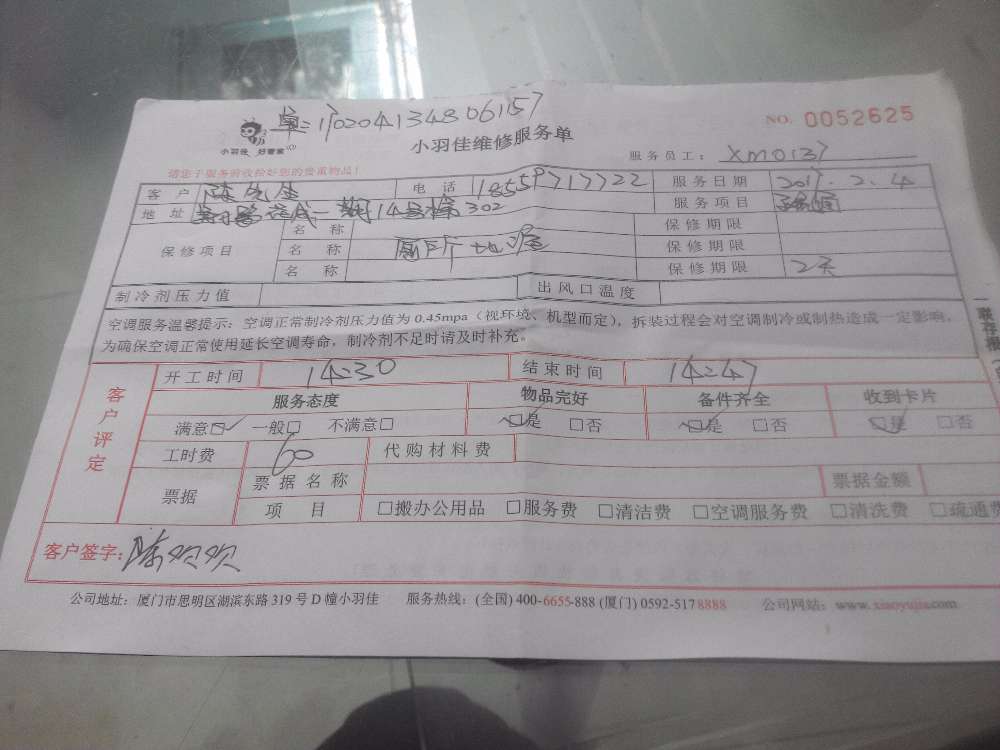 单:17020413480 61157
NO. 0052625
小羽佳 好管家
小羽佳维修服务单
服务员工: XM0137
请您于服务前收拾好您的贵重物品!
客户 陈先生 电话 18559717722 服务日期 2017.2.4
地址 一期14号楼302 服务项目
保修项目 名称 保修期限
名称 厕所地漏 保修期限
名称 保修期限 2天
制冷剂压力值 出风口温度
空调服务温馨提示:空调正常制冷剂压力值为0.45mpa(视环境、机型而定),拆装过程会对空调制冷或制热造成一定影响,
为确保空调正常使用延长空调寿命,制冷剂不足时请及时补充。
一联存根
客户评定
开工时间 14:30 结束时间 14:47
服务态度 物品完好 备件齐全 收到卡片
满意□✓ 一般□ 不满意□ ☑是 □否 ☑是 □否 ☑是 □否
工时费 60 代购材料费
票据 票据名称 票据金额
项目 □搬办公用品 □服务费 □清洁费 □空调服务费 □清洗费 □疏通费
客户签字:陈欢欢
公司地址:厦门市思明区湖滨东路319号D幢小羽佳 服务热线:(全国)400-6655-888(厦门)0592-5178888 公司网站:www.xiaoyujia.com